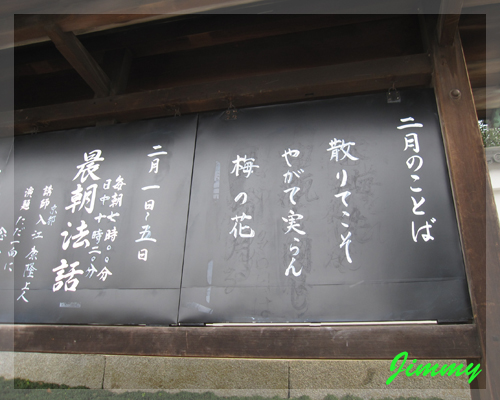 二月のことば
散りてこそ
やがて実らん
梅の花
二月一日~五日
毎朝七時〇〇分
日中十時三〇分
晨朝法話
京都
講師 入江泰隆上人
演題 ただ一向に
Jimmy